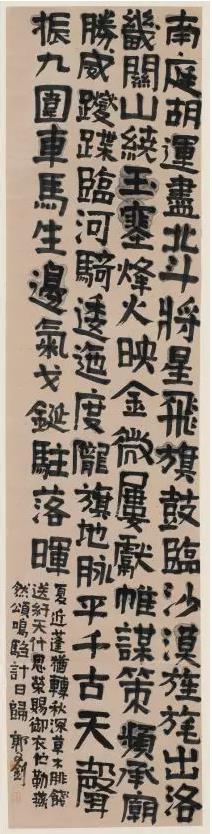 南庭胡運盡北斗將星飛旗鼓臨沙漠旌旄出洛
畿關山繞玉塞烽火映金微屢獻帷謀策頻承廟
勝威躞蹀臨河騎逶迤度隴旗地脉平千古天聲
振九圍車馬生邊氣戈鋋駐落暉
夏近蓬猶轉秋深草木腓餞
送紆天什恩榮賜御衣佇勒燕
然頌鳴騶計日歸